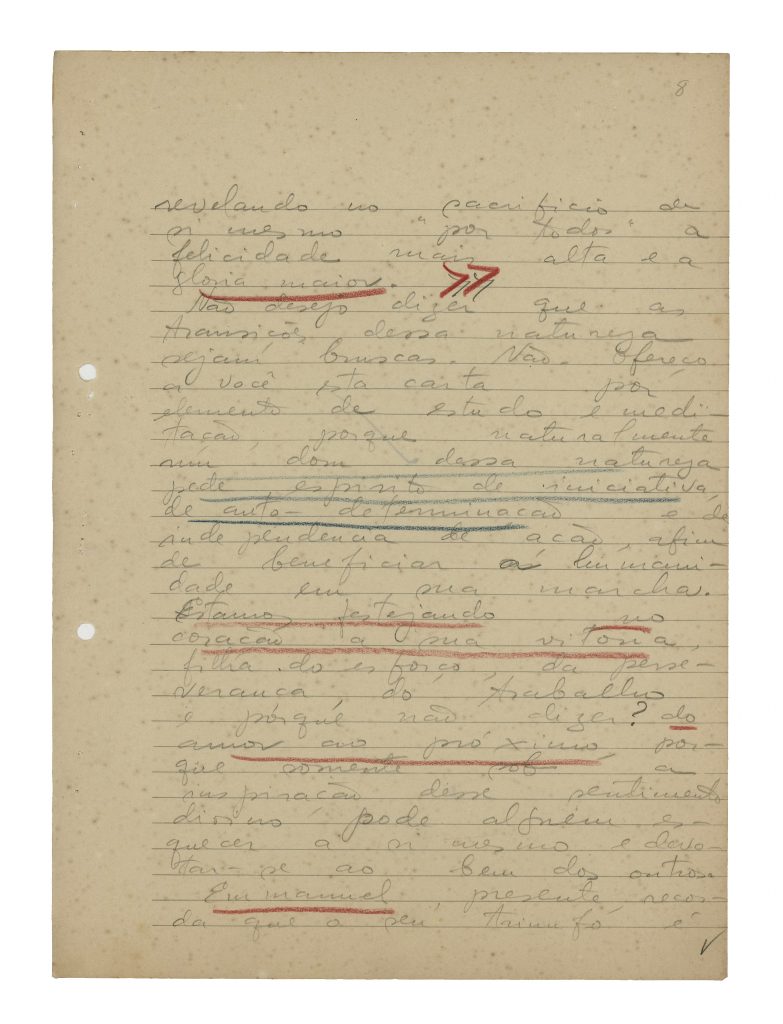 8
revelando no sacrificio de
si mesmo "por todos" a
felicidade mais alta e a
gloria maior.
Não desejo dizer que as
transições dessa natureza
sejam bruscas. Não. Ofereço
a você esta carta por
elemento de estudo e medi-
tação, porque naturalmente
um dom dessa natureza
pede espirito de iniciativa,
de auto-determinação e de
independencia de ação, afim
de beneficiar a humani-
dade em sua marcha.
Estamos festejando no
coração a sua vitoria,
filha do esforço, da perse-
verança, do trabalho
e porquê não dizer? do
amor ao próximo, por-
que somente sob a
inspiração desse sentimento
divino pode alguém es-
quecer a si mesmo e devo-
tar-se ao bem dos outros.
Emmanuel, presente, recor-
da que o seu triunfo é